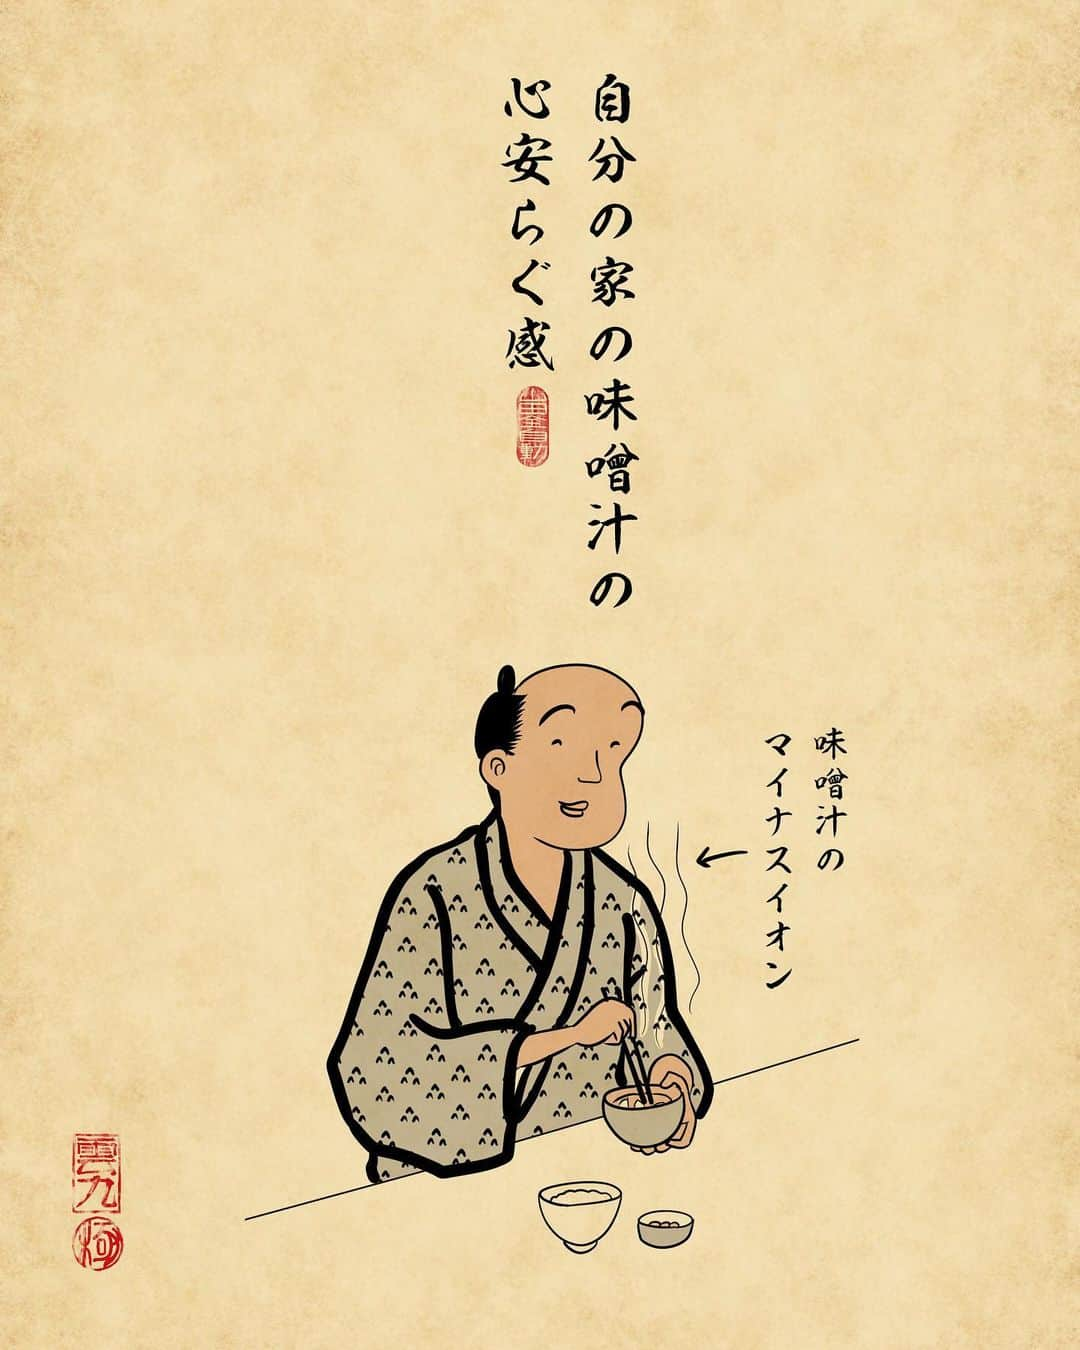 自分の家の味噌汁の
心安らぐ感
味噌汁の
マイナスイオン